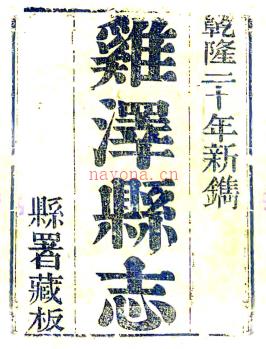 乾隆二十年新鐫
雞澤縣志
縣署藏板
nayona.cn